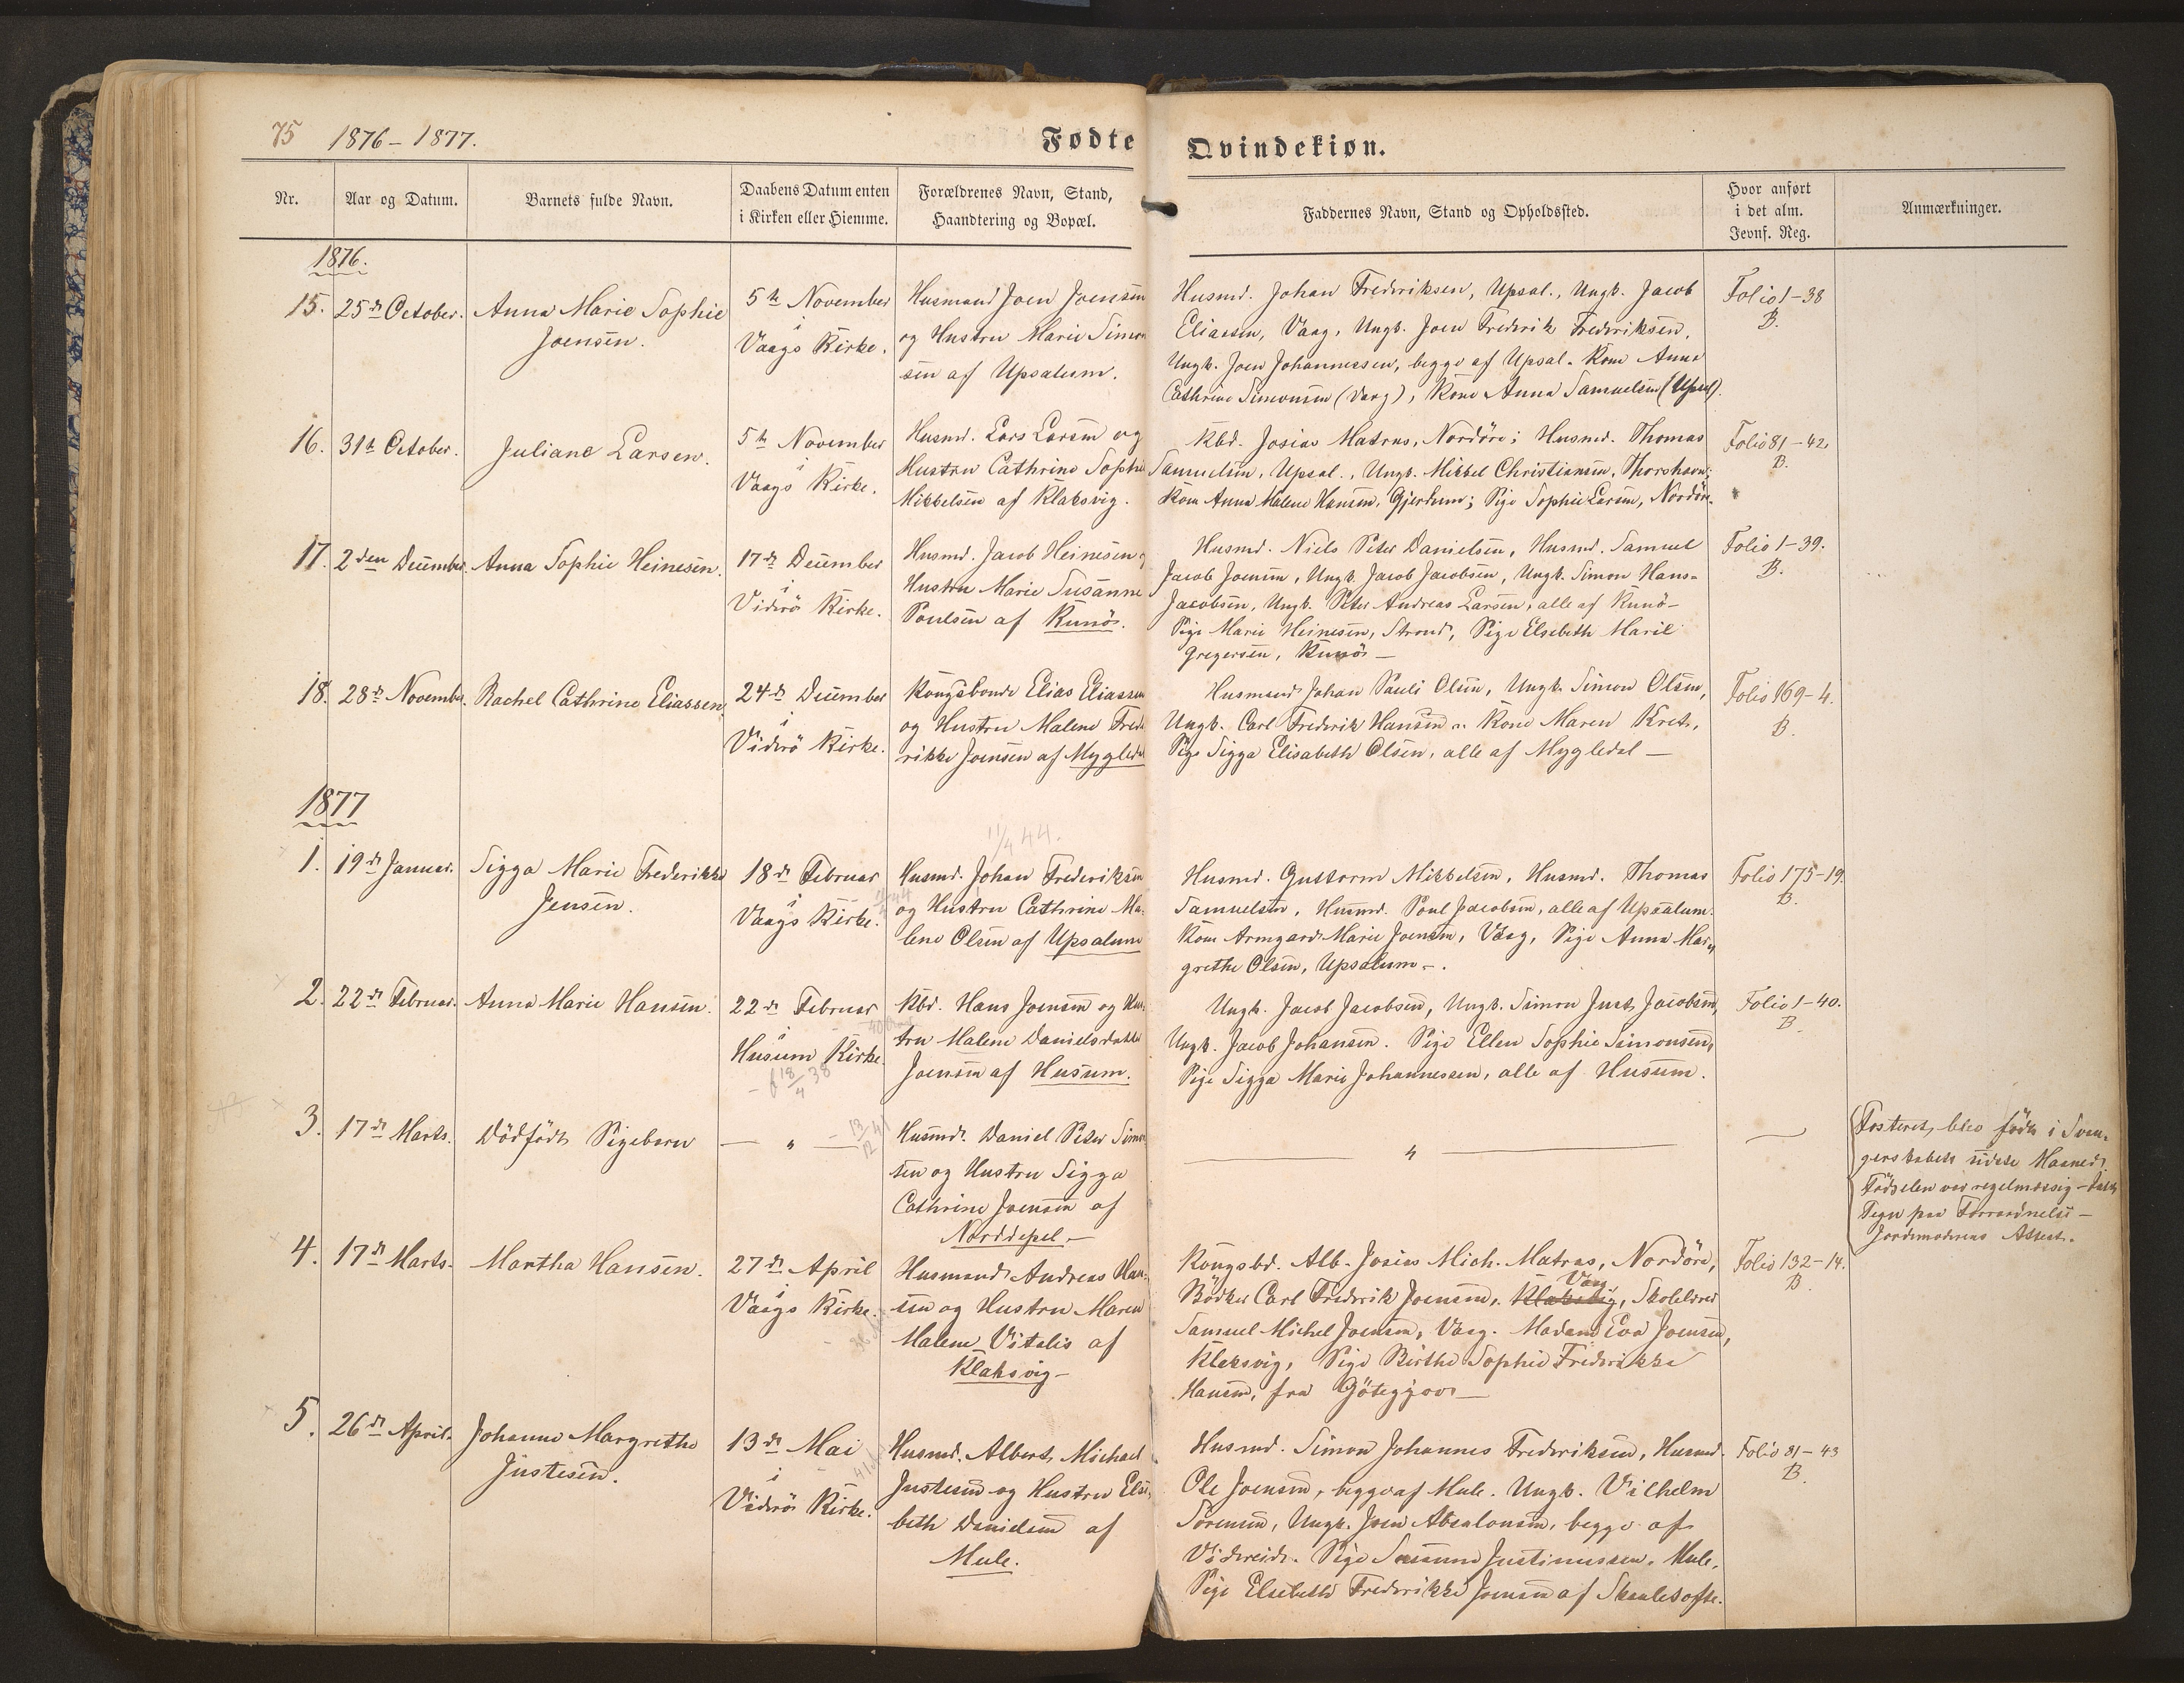 75 1876-1877. Fødte Qvindekiøn.
Nr. Aar og Datum. Barnets fulde Navn. Daabens Datum enten i Kirken eller Hiemme. Forældrenes Navn, Stand, Haandtering og Bopæl. Faddernes Navn, Stand og Opholdssted. Hvor anført i det alm. Jevnf. Reg. Anmærkninger.
1876.
15. 25de October. Anna Marie Sophie
Joensen.
5te November
i
Vaags Kirke.
Husmand Joen Joensen
og Hustru Marie Simon
sen af Upsalum.
Husmd. Johan Frederiksen, Upsal., Ungk. Jacob
Eliassen, Vaag, Ungk. Joen Frederik Frederiksen,
Ungk. Joen Johannessen, begge af Upsal. Kone Anna
Cathrine Simonsen (Vaag), Kone Anna Samuelsen (Upsal).
Folio 1-38
B.
16. 31te October. Juliane Larsen.
5te November
i
Vaags Kirke.
Husmd. Lars Larsen og
Hustru Cathrine Sophie
Mikkelsen af Klaksvig.
Kbd. Josias Matras, Nordöre; Husmd. Thomas
Samuelsen, Upsal., Ungk. Mikkel Christiansen, Thorshavn;
Kone Anna Malene Hansen, Gjerdum; Pige Sophie Larsen, Nordöre.
Folio 81-42
B.
17. 2den December. Anna Sophie Heinesen.
17de December
i
Viderö Kirke.
Husmd. Jacob Heinesen
Hustru Marie Susanne
Poulsen af Kunö.
Husmd. Niels Peter Danielsen, Husmd. Samuel
Jacob Joensen, Ungk. Jacob Jacobsen, Ungk. Simon Hans-
Jacobsen, Ungk. Peter Andreas Larsen, alle af Kunö-
Pige Marie Heinesen, Strond, Pige Elsebeth Marie
Gregersen, Kunö-
Folio 1-39.
B.
18. 28de November. Rachel Cathrine Eliassen.
24de December
i
Viderö Kirke.
Kongsbonde Elias Eliassen
og Hustru Malene Frede
rikke Joensen af Mygledal
Husmand Johan Pauli Olsen, Ungk. Simon Olsen,
Ungk. Carl Frederik Hansen. Kone Maren
Pige Sigga Elisabeth Olsen, alle af Mygledal-
Folio 169-4.
B.
1877
11/4 44.
1. 19de Januar. Sigga Marie Frederikke
Jensen.
18de Februar
i
Vaags Kirke.
Husmd. Johan Frederiksen
og Hustru Cathrine Ma-
lene Olsen af Upsalum
Husmd. Guttorm Mikkelsen, Husmd. Thomas
Samuelsen, Husmd. Poul Jacobsen, alle af Upsalum.
Kone Armgard Marie Joensen, Vaag, Pige Anna Mar-
grethe Olsen, Upsalum-.
Folio 175-19.
B.
2. 22de Februar. Anna Marie Hansen.
22de Februar
i
Husum Kirke.
18/4 38
Kbd. Hans Joensen og Hus-
tru Malene Danielsdatter
Joensen af Husum.
Ungk. Jacob Jacobsen, Ungk. Simon Just Jacobsen,
Ungk. Jacob Johansen. Pige Ellen Sophie Simonsen,
Pige Sigga Marie Johannessen, alle af Husum.
Folio 1-40.
B.
3. 17de Marts. Dödfödt Pigebarn
— " —
13/12 41
Husmd. Daniel Peter Simon
sen og Hustru Sigga
Cathrine Joensen af
Norddepel.-
— " —
Fosteret blev födt i Svan-
gerskabets sidste Maaned.
Födselen var regelmæssig-
Tegn paa Forraadnelse-
Jordemoderens Attest.
4. 17de Marts. Martha Hansen.
27de April
i
Vaags Kirke.
Husmand Andreas Han-
sen og Hustru Maren
Malene Vitalis af
Klaksvig-
Kongsbd. Alb. Josias Mich. Matras, Nordöre,
Vaag
Bödker Carl Frederik Joensen, Klaksvig, Skolelærer
Samuel Michel Joensen, Vaag. Madam Eva Joensen,
Klaksvig, Pige Birthe Sophie Frederikke
Hansen, fra Götegjov-
Folio 132-14.
B.
5. 26de April. Johanne Margrethe
Justesen.
13de Mai
i
Viderö Kirke.
Husmd. Albert Michael
Justesen og Hustru Else-
beth Danielsen af
Mule.
Husmd. Simon Johannes Frederiksen, Husmd.
Ole Joensen, begge af Mule. Ungk. Vilhelm
Sörensen, Ungk. Joen Absalonsen, begge af
Videreide. Pige Susanne Justinussen, Mule,
Pige Elsebeth Frederikke Joensen af Skaaletofte.
Folio 81-43
B.